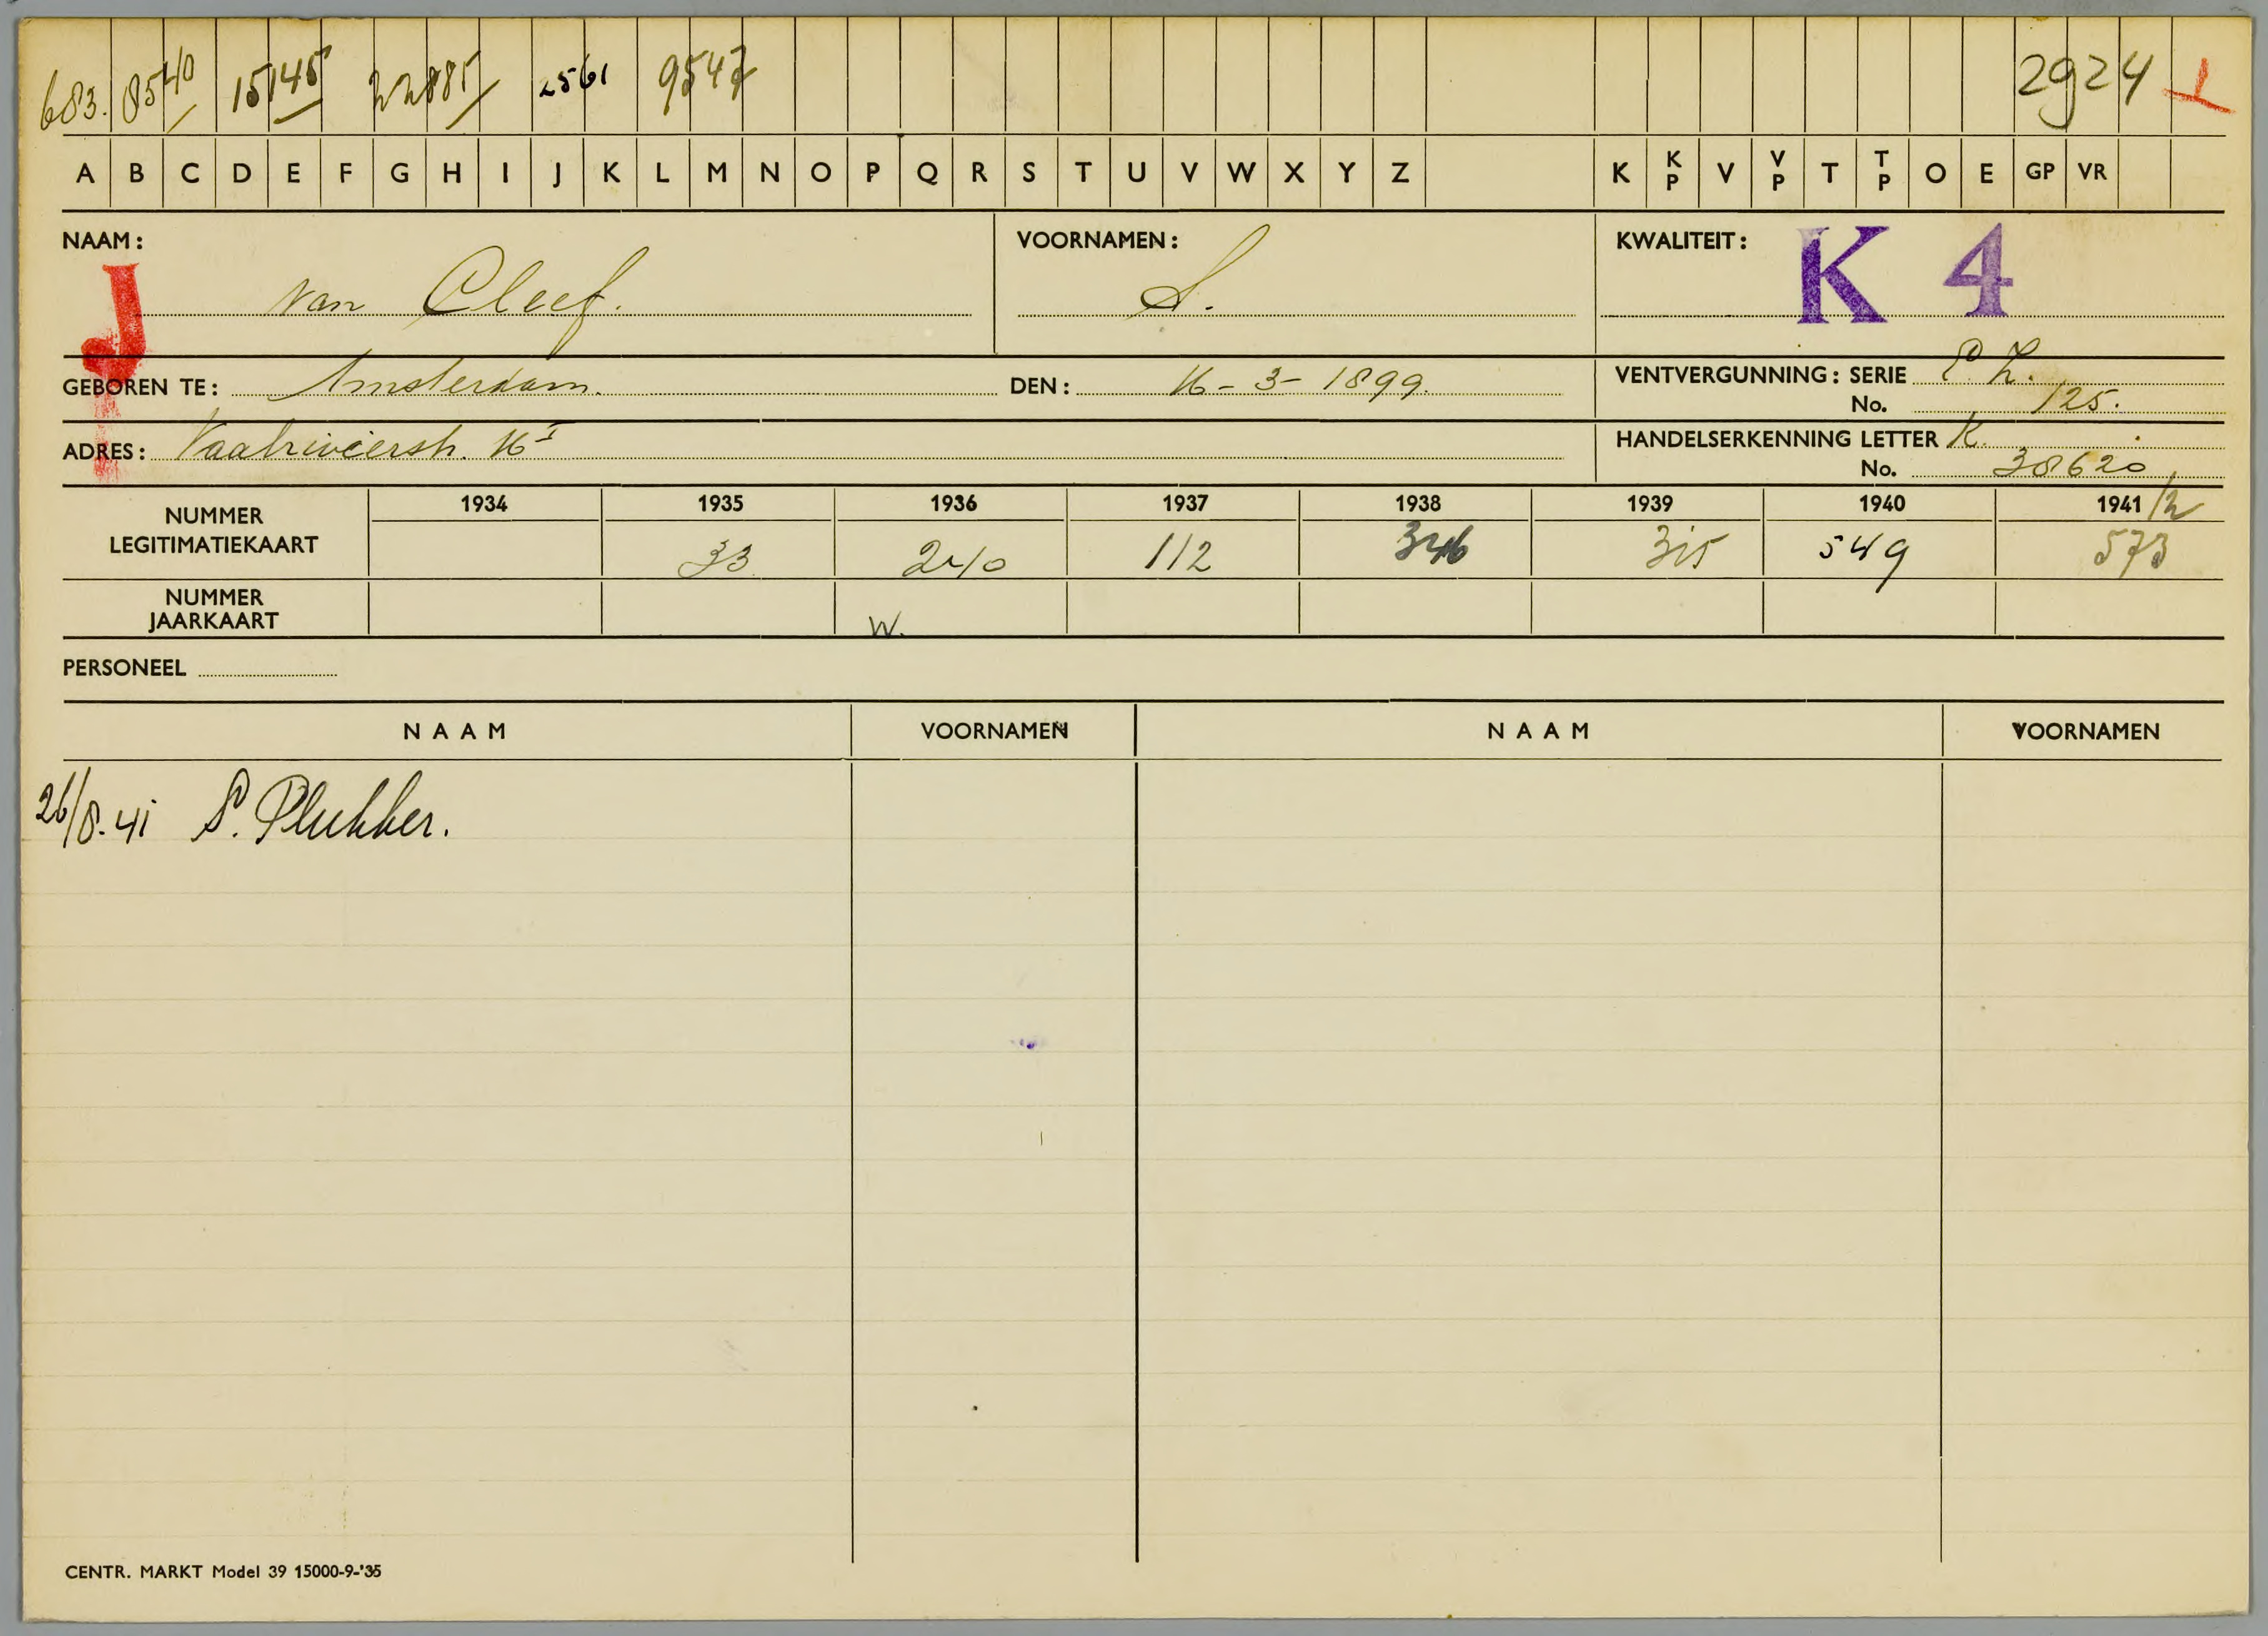 683. 8540 15145 22885 2561 9547 2924 1
A B C D E F G H I J K L M N O P Q R S T U V W X Y Z K KP V VP T TP O E GP VR
NAAM: van Cleef. VOORNAMEN: S. KWALITEIT: K 4
J
GEBOREN TE: Amsterdam. DEN: 16-3-1899. VENTVERGUNNING: SERIE P. Z.
No. 125.
ADRES: Vaalrivierstr. 16 I HANDELSERKENNING LETTER K.
No. 38620
1934 1935 1936 1937 1938 1939 1940 1941/2
NUMMER LEGITIMATIEKAART 33 240 112 346 315 549 573
NUMMER JAARKAART W.
PERSONEEL
NAAM VOORNAMEN NAAM VOORNAMEN
26/8.41 S. Plukker.
CENTR. MARKT Model 39 15000-9-'35